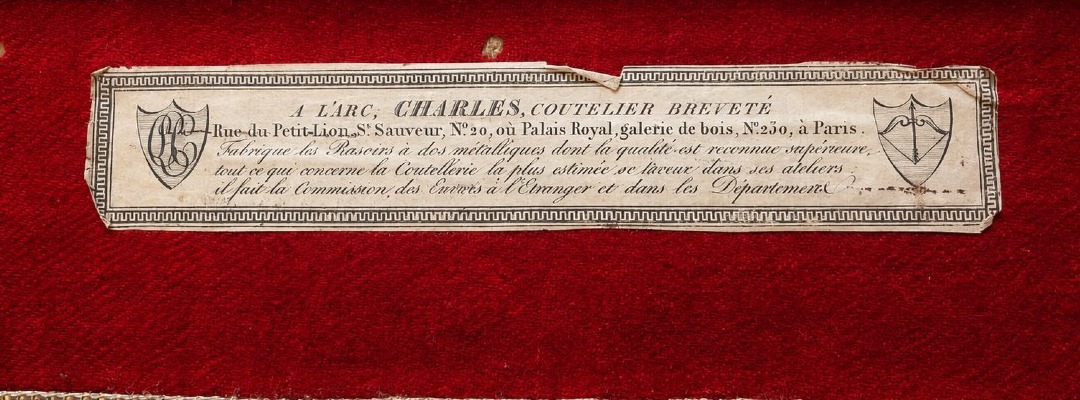 A L'ARC, CHARLES, COUTELIER BREVETÉ
Rue du Petit-Lion St. Sauveur, No. 20, où Palais Royal, galerie de bois, No. 230, à Paris.
Fabrique les Rasoirs à dos métalliques dont la qualité est reconnue supérieure,
tout ce qui concerne la Coutellerie la plus estimée se trouve dans ses ateliers
il fait la Commission des Envois à l'Etranger et dans les Départemens